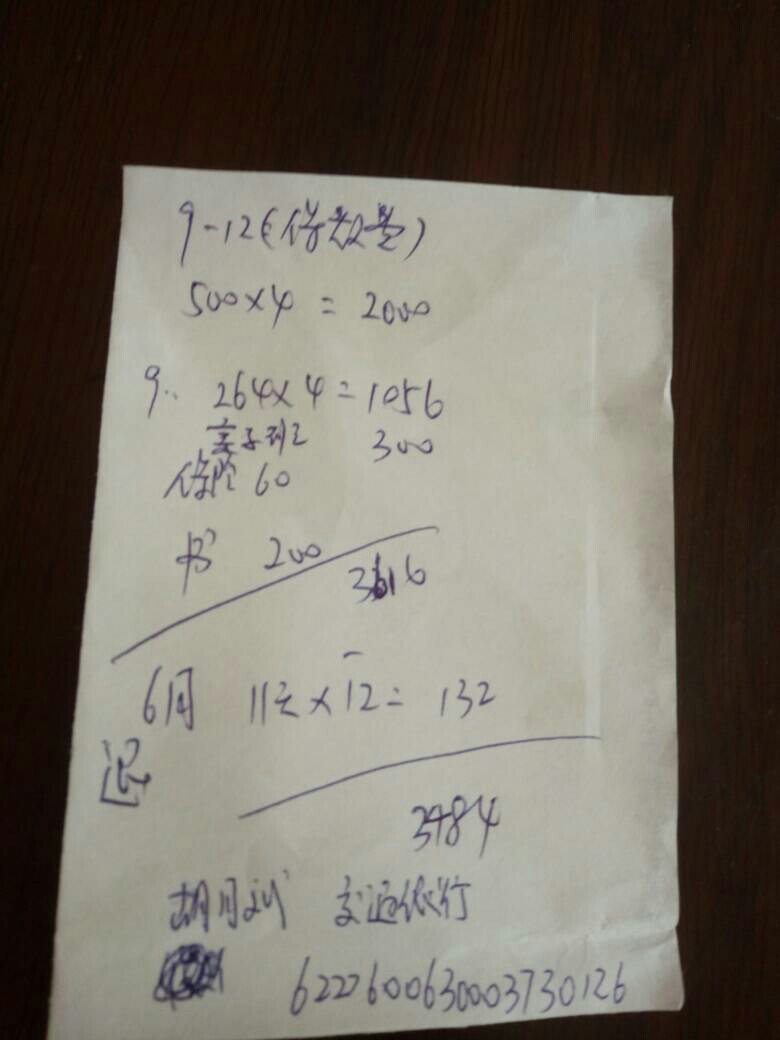 9-12(保教费)
500×4 = 2000
9.. 264×4=1056
亲子班 300
保险 60
书 200
3616
6月 11元×12= 132
退
3484
胡月 交通银行
6222600630003730126